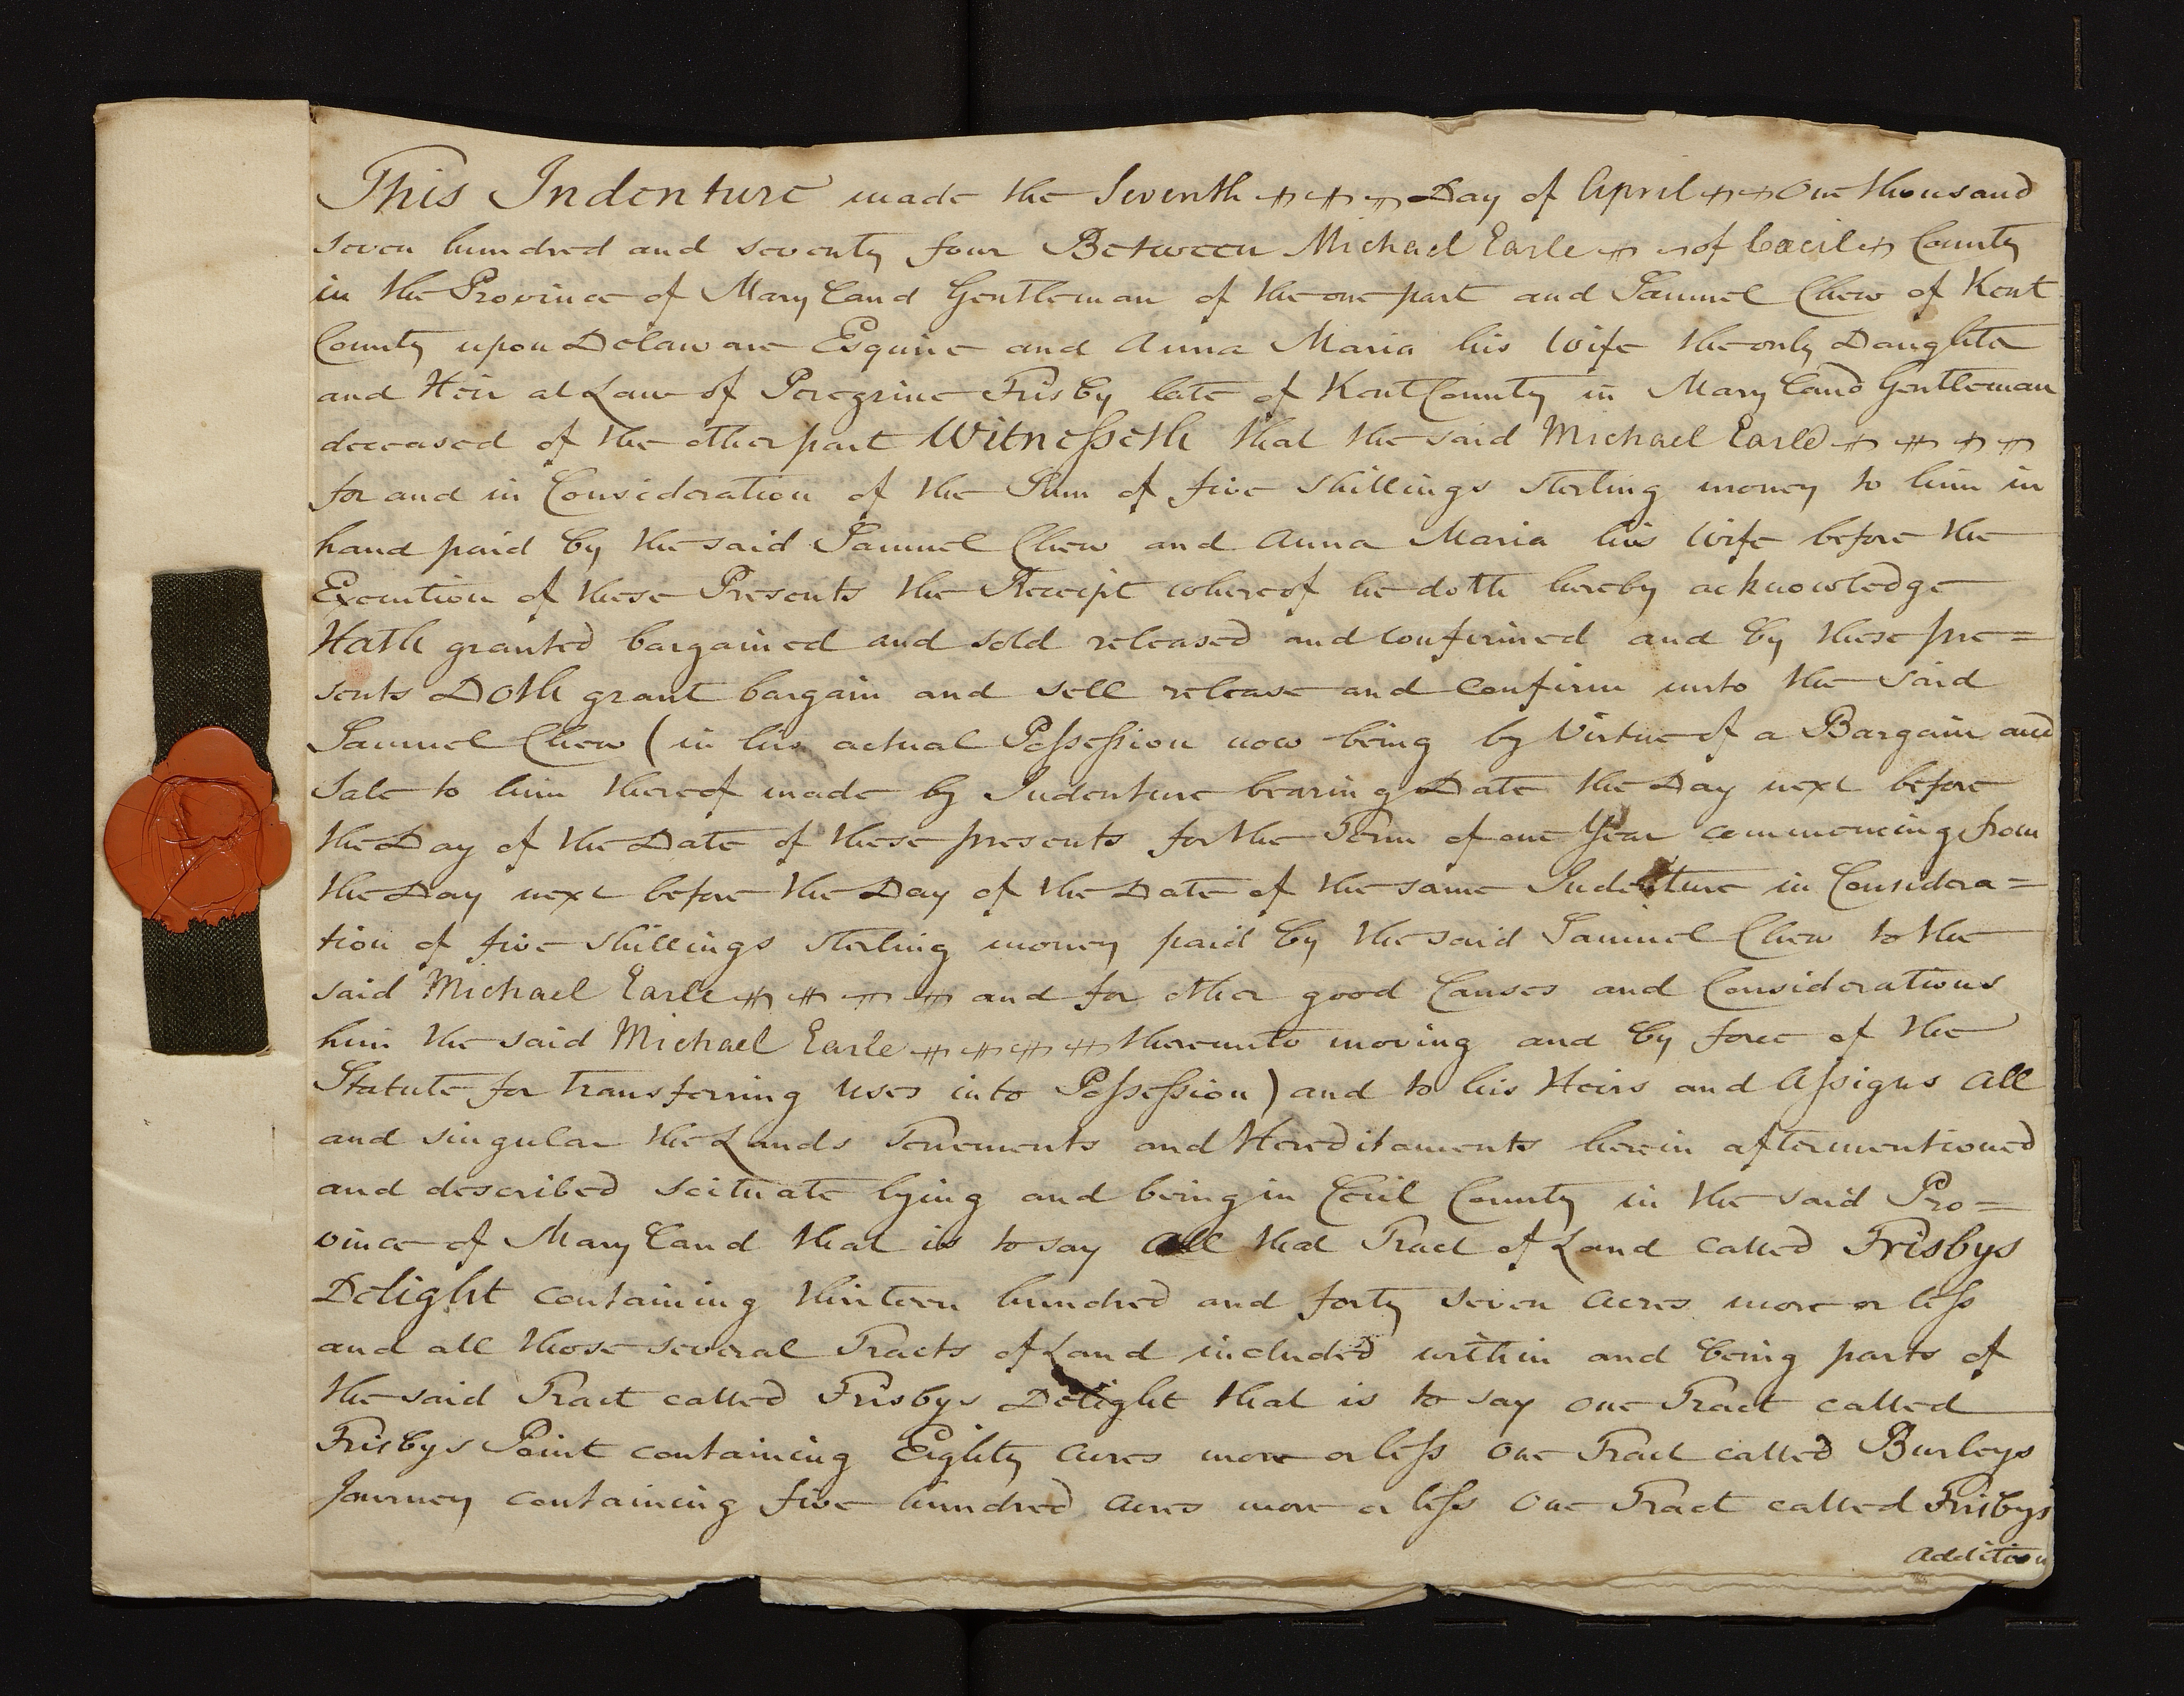 This Indenture made the Seventh Day of April One thousand
seven hundred and seventy four Between Michael Earle of Cæcil County
in the Province of Mary land Gentleman of the one part and Samuel Chew of Kent
County upon Delaware Esquire and Anna Maria his Wife the only Daughter
and Heir at Law of Peregrine Frisby late of Kent County in Mary land Gentleman
deceased of the other part Witnesseth that the said Michael Earle
for and in Consideration of the Sum of five shillings sterling money to him in
hand paid by the said Samuel Chew and Anna Maria his Wife before the
Execution of these Presents the Receipt whereof he doth hereby acknowledge
Hath granted bargained and sold released and confirmed and by these pre=
sents Doth grant bargain and sell release and confirm unto the said
Samuel Chew (in his actual Possession now being by Virtue of a Bargain and
Sale to him thereof made by Indenture bearing Date the Day next before
the Day of the Date of these presents for the Term of one Year commencing from
the Day next before the Day of the Date of the same Indenture in Considera=
tion of five shillings sterling money paid by the said Samuel Chew to the
said Michael Earle and for other good Causes and Considerations
him the said Michael Earle thereunto moving and by force of the
Statute for transferring uses into Possession) and to his Heirs and Assigns all
and singular the Lands Tenements and Hereditaments herein aftermentioned
and described scituate lying and being in Cecil County in the said Pro=
vince of Mary land that is to say all that Tract of Land called Frisbys
Delight containing thirteen hundred and forty seven acres more or less
and all those several Tracts of Land included within and being parts of
the said Tract called Frisbys Delight that is to say one Tract called
Frisbys Point containing Eighty acres more or less one Tract called Burleys
Journey containing five hundred acres more or less one Tract called Frisbys
addition